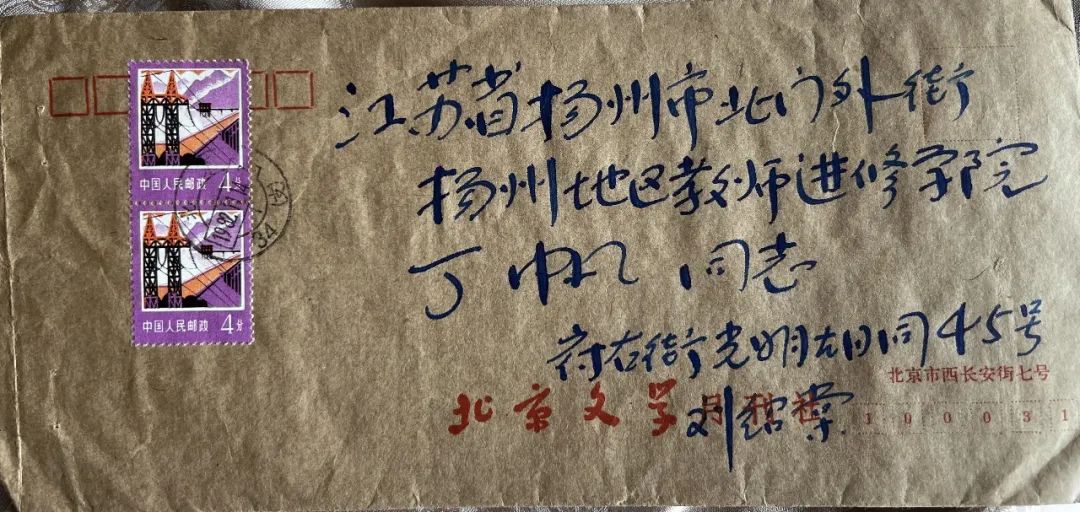 江苏省扬州市北门外街
扬州地区教师进修学院
丁帆 同志
府右街光明胡同45号
北京市西长安街七号
北京文学月刊社
刘绍棠
100031
中国人民邮政 4分
中国人民邮政 4分
1982
3A